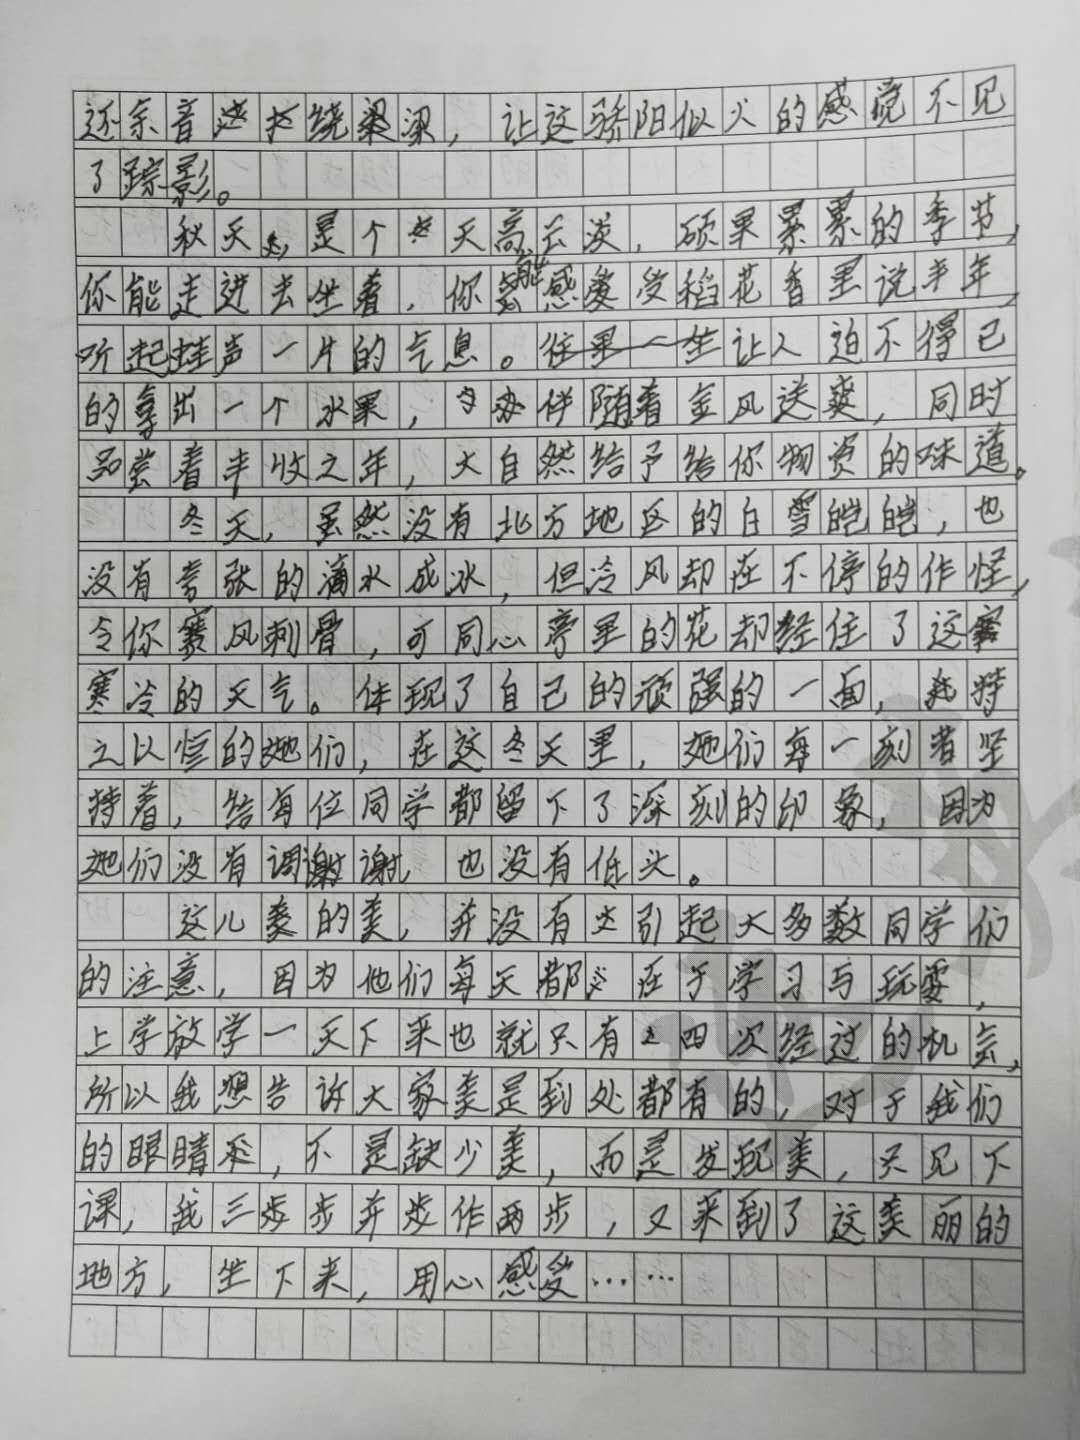 还余音绕梁，让这骄阳似火的感觉不见
了踪影。
秋天，是个天高云淡，硕果累累的季节，
你能走进去坐着，你能感受稻花香里说丰年，
听起蛙声一片的气息。让人迫不得已
的拿出一个水果，伴随着金风送爽，同时
品尝着丰收之年，大自然给予给你物资的味道。
冬天，虽然没有北方地区的白雪皑皑，也
没有夸张的滴水成冰，但冷风却在不停的作怪，
令你寒风刺骨，可同心亭里的花却经住了这
寒冷的天气。体现了自己的顽强的一面，持
之以恒的她们，在这冬天里，她们每一刻者坚
持着，给每位同学都留下了深刻的印象，因为
她们没有调谢，也没有低头。
这儿美的美，并没有引起大多数同学们
的注意，因为他们每天都在于学习与玩耍，
上学放学一天下来也就只有四次经过的机会，
所以我想告诉大家美是到处都有的，对于我们
的眼睛，不是缺少美，而是发现美，只见下
课，我三步并步作两步，又来到了这美丽的
地方，坐下来，用心感受……